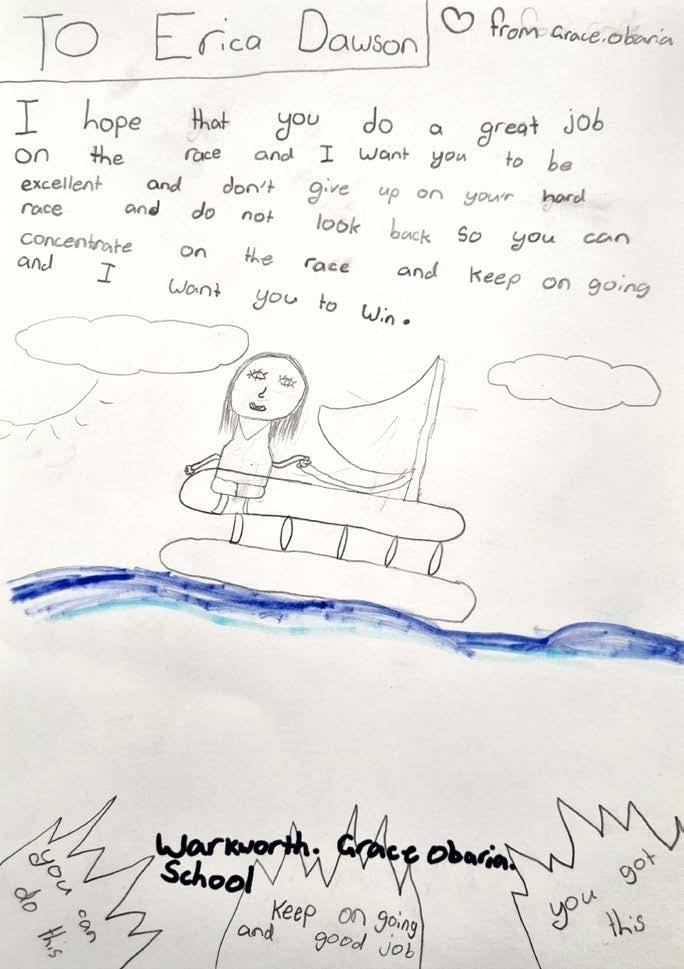 TO Erica Dawson
♡ from Grace.obaria
I hope that you do a great job
on the race and I want you to be
excellent and don't give up on your hard
race and do not look back so you can
concentrate on the race and keep on going
and I want you to win.
Warkworth. Grace Obaria.
School
you can
do this
Keep on going
and good job
you got
this